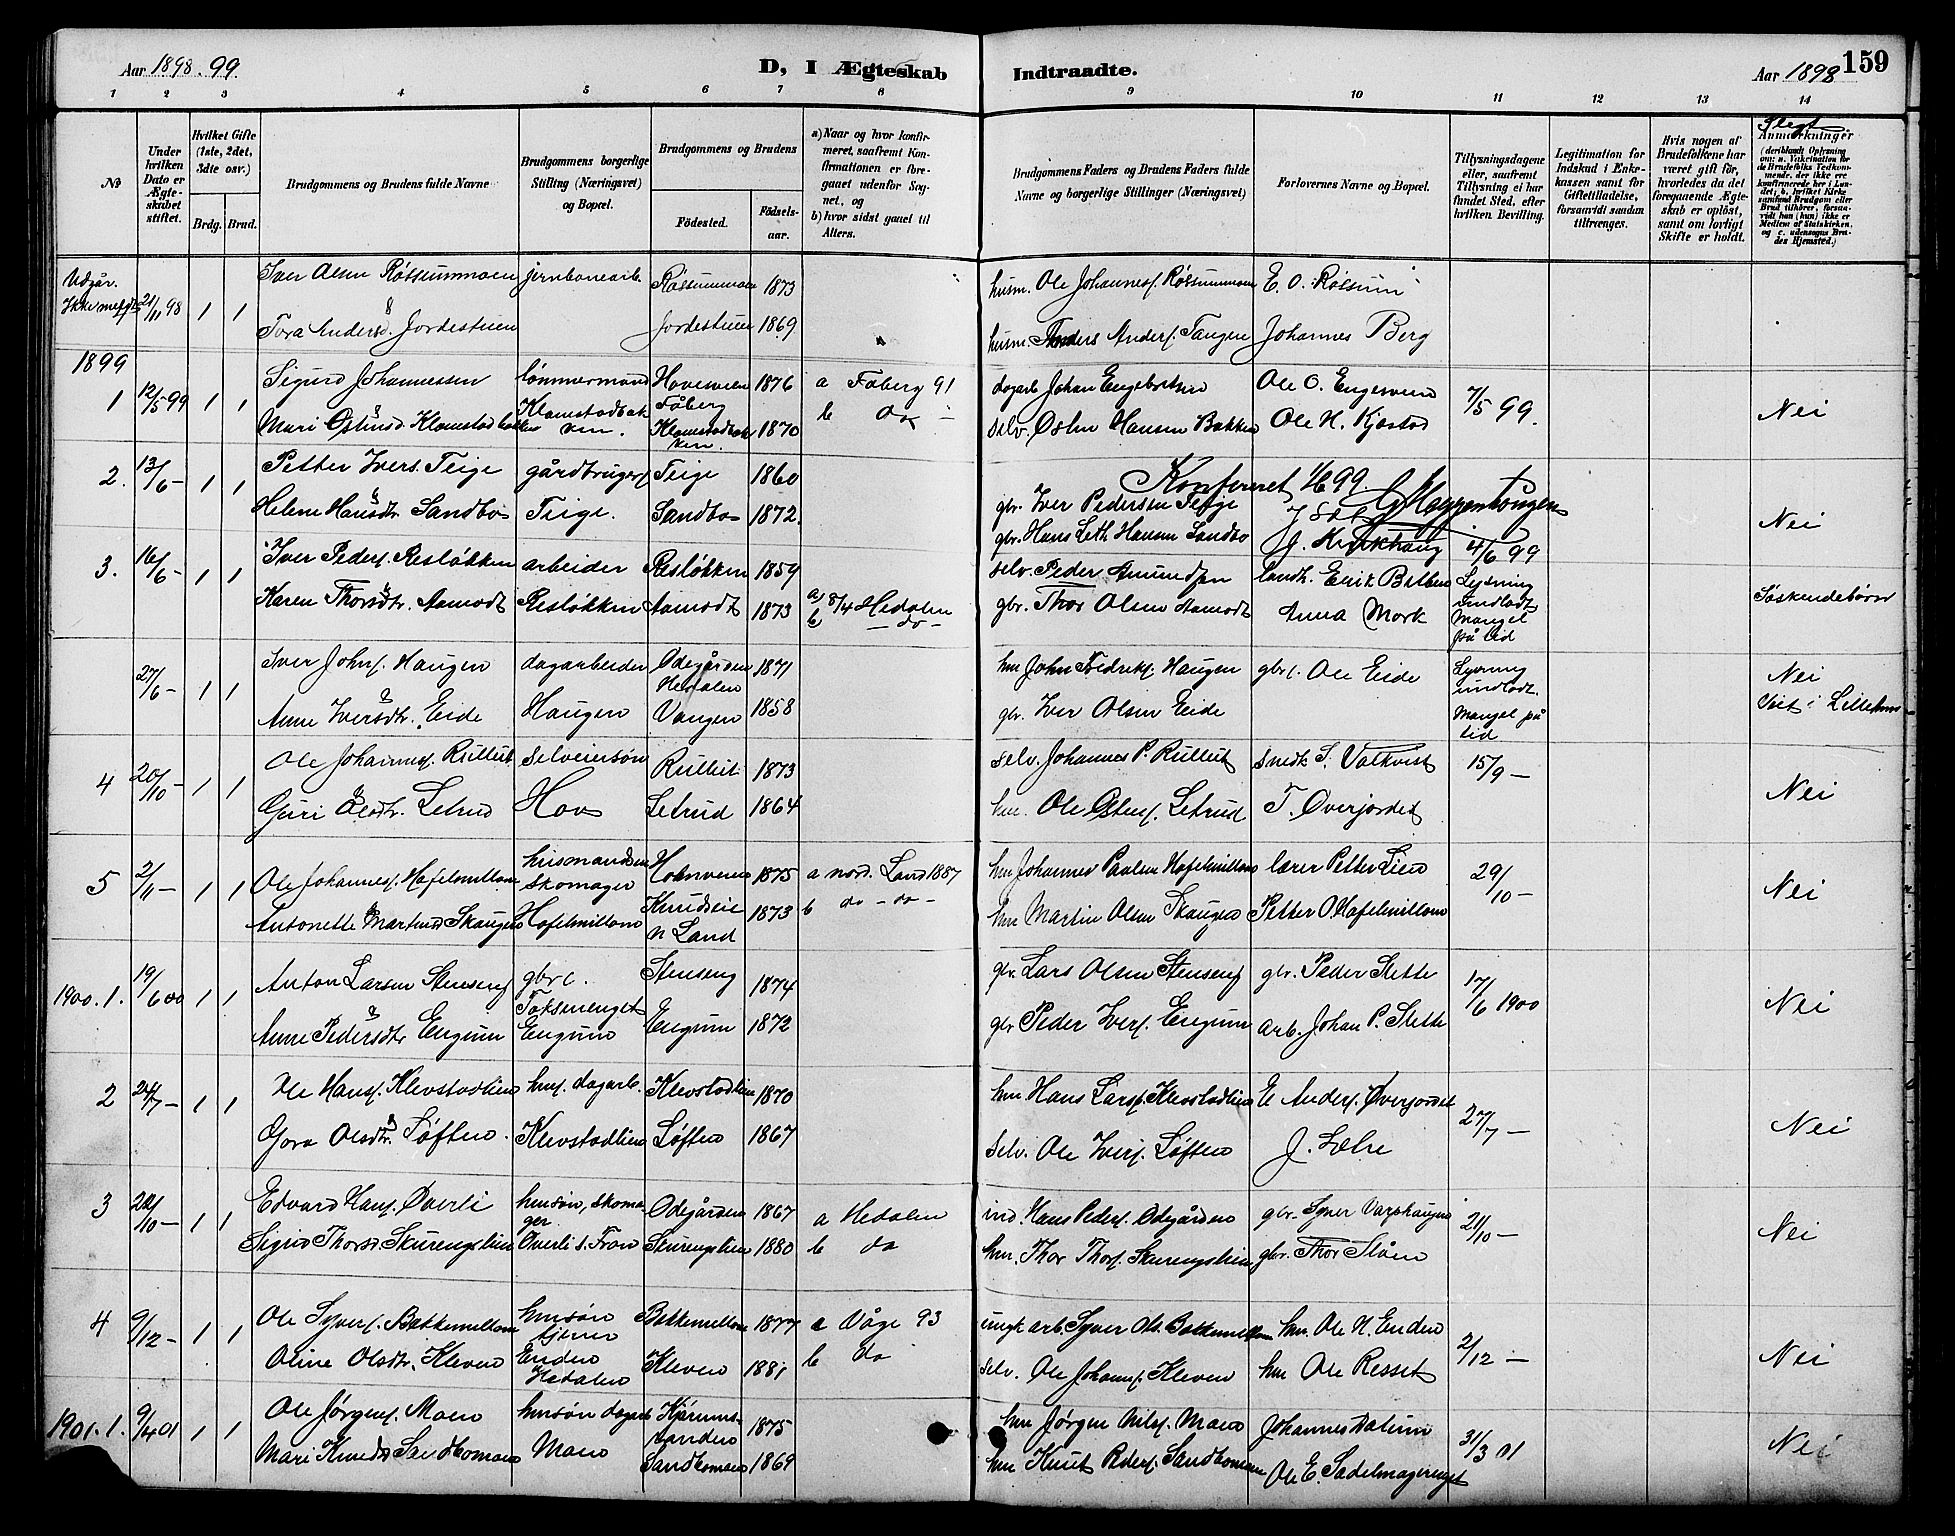 Aar 1898-99
D, I Ægteskab
Indtraadte.
Aar 1898
159
1 2 3 4 5 6 7 8 9 10 11 12 13 14
No
Under hvilken Dato er Ægteskabet stiftet.
Hvilket Gifte (1ste, 2det, 3die osv.)
Brdg. Brud.
Brudgommens og Brudens fulde Navne
Brudgommens borgerlige Stilling (Næringsvei) og Bopæl.
Brudgommens og Brudens
Fødested.
Fødselsaar.
a) Naar og hvor konfirmeret, saafremt Konfirmationen er foregaaet udenfor Sognet, og
b) hvor sidst gaaet til Alters.
Brudgommens Faders og Brudens Faders fulde Navne og borgerlige Stillinger (Næringsvei)
Forlovernes Navne og Bopæl.
Tillysningsdagene eller, saafremt Tillysning ei har fundet Sted, efter hvilken Bevilling.
Legitimation for Indskud i Enkekassen samt for Giftetilladelse, forsaavidt saadan tiltrænges.
Hvis nogen af Brudefolkene har været gift før, hvorledes da det foregaaende Ægteskab er opløst, samt om lovligt Skifte er holdt.
Slegt
Anmærkninger
Udgår.
Ikke 21/11 98 1 1 Iver Olsen Røssummoen jernbanearb. Røssummoen 1873 husm. Ole Johannesf. Røssummoen E. O. Røssum
Tora Endersd. Jordestuen Jordestuen 1869 husm. Anders Andersf. Tangen Johannes Berg
1899
1 12/5 99 1 1 Sigurd Johannessen tømmermand Hoveveien Fåberg 1876 a Fåberg 91 dagarb. Johan Engebretsen Ole O. Engesveen 7/5 99.
Mari Østensd. Klomstadbakken Klomstadbakken. Klomstadbakken 1870 b do - selv. Østen Hansen Bakken Ole H. Kjøstad Nei
2. 13/6 - 1 1 Petter Ivers. Teige gårdbrugerf. Teige 1860 Konfereret 1/6 99
gbr. Iver Pedersen Teige
Helene Hansdtr. Sandbo Teige. Sandbo 1872. gbr. Hans Leth. Hansen Sandbo J. Kirkhaug 4/6 99 Nei
3. 16/6 - 1 1 Iver Pedersf. Resløkken arbeider Resløkken 1859 selv. Peder Amundsen landh. Erik Lysning undladt
Karen Thorsdtr. Aamodt Resløkken Aamodt 1873 a) 8/4 Hedalen b) - do - gbr. Thor Olsen Aamodt Anna Mork Mangel på tid Søskendebørn
27/6 - 1 1 Iver Johnf. Haugen dagarbeider Ødegården Hedalen 1871 hm John Fredrikf. Haugen gbr. Ole Eide Lysning undladt. Nei
Anne Iversdtr. Eide Haugen Vangen 1858 gbr. Iver Olsen Eide Mangel på tid
4 20/10 - 1 1 Ole Johannesf. Rullut selveiersøn Rullut 1873 selv. Johannes P. Rullut snedk. S. Valkvist 15/9 -
Guri Olsdtr. Letrud Hov Letrud 1864 hm. Ole Østenf. Letrud T. Overjordet Nei
5 2/11 - 1 1 Ole Johannesf. Hafelmillom husmandssøn skomager 1875 a nord. Land 1887 hm Johannes Paalsen Hafelmillom lærer Petter Lien 29/10 -
Antonette Martinsd Skaugen Hafelmillom Knudseie N Land 1873 b do - do - hm Martin Olsen Skaugen Petter O. Hafelmillom Nei
1900. 1. 19/6 00 1 1 Anton Larsen Stenseng gbr. Stenseng 1874 gbr. Lars Olsen Stenseng gbr. Peder Slette 17/6 1900
Anne Pedersdtr Engum Engum Engum 1872 gbr Peder Iverf. Engum arb. Johan P. Slette Nei
2 24/7 - 1 1 Ole Hansf. Klevstadlien hmf. dagarb. Klevstadlien 1870 hm Hans Larsf. Klevstadlien E Andersf. Øverjordet 27/7 -
Gora Olsdtr. Løften. Klevstadlien Løften 1867 selv. Ole Iverf. Løften J. Lehe Nei
3 24/10 - 1 1 Edvard Hansf. Øverli hmsøn, skomager Ødegården 1867 a Hedalen ind. Hans Pedersf. Ødegården gbr. Syver Varphaugen 21/10 -
Sigrid Thorsd. Skurengslien Øverli s. Fron Skurengslien 1880 b do hm. Thor Thorf. Skurengslien gbr. Thor Slåen Nei
4 9/12 - 1 1 Ole Syverf. Bakkemellom hmsøn tjener Bakkemellom 1877 a Våge 93 ungk arb. Syver Ols. Bakkemellom hm. Ole N. Enden 2/12 -
Oline Olsdtr. Kleven Enden Hedalen Kleven 1881 b do selv. Ole Johannsf. Kleven hm Ole Resset Nei
1901. 1. 9/4 01 1 1 Ole Jørgenf. Moen hmsøn dagarb Kjørumsstanden 1875 hm Jørgen Nilsf. Moen Johannes Dalum 31/3 01
Mari Knudsd Sandbomoen Moen Sandbomoen 1869 hm Knut Pedersf. Sandbomoen Ole E. Sadelmagerenget Nei